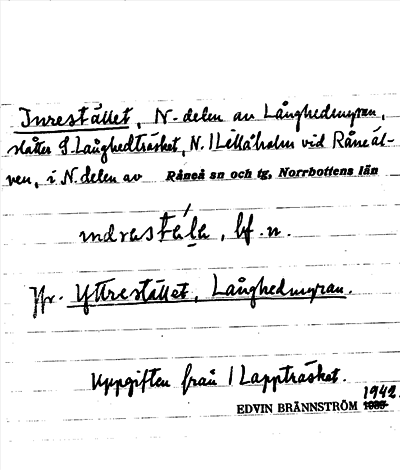 Inrestället, N-delen av Långhedmyran,
slåtter S. Långhedträsket, N. Lillåholm vid Råneäl-
ven, i N. delen av Råneå sn och tg, Norrbottens län
indrastéla, bf. n.
Jfr. Yttrestället, Långhedmyran.
Uppgiften från Lappträsket.
1942.
EDVIN BRÄNNSTRÖM